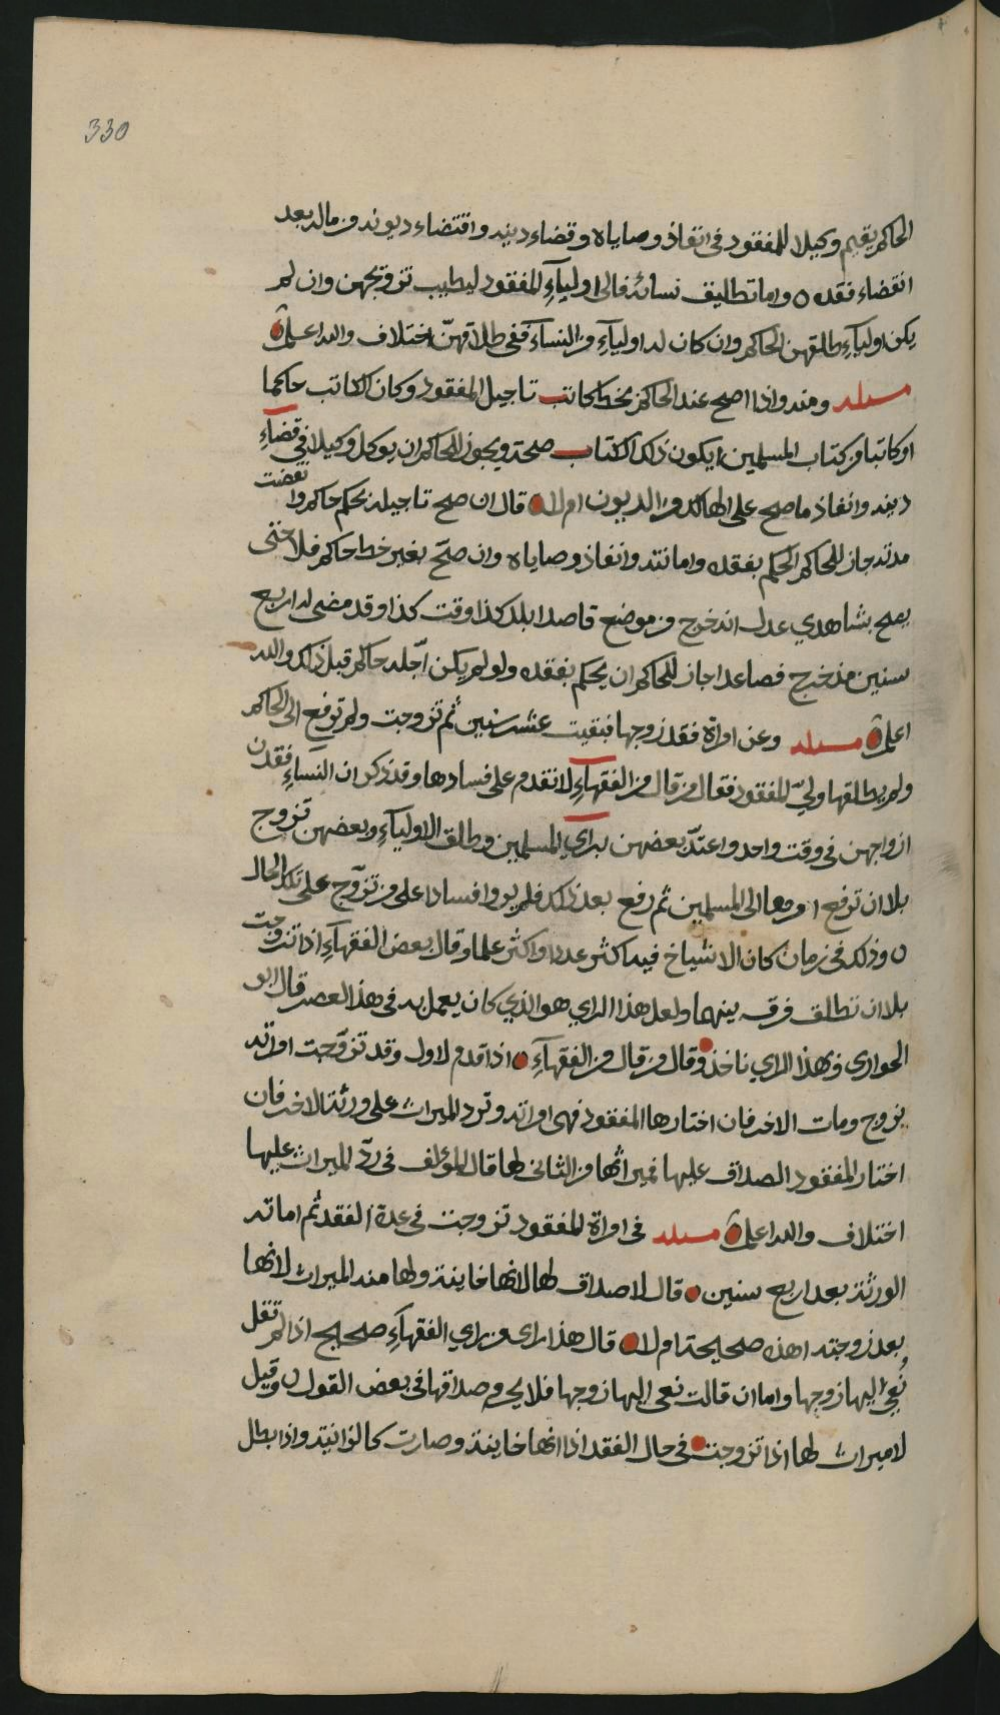 330
الحاكم يقيم وكيلا للمفقود فى انفاذ وصاياه وقضاء دينه واقتضاء ديونه من ماله بعد
انقضاء فقده ٥ واما تطليق نسائه فالى اوليآءِ المفقود ليطيب تزويجهن وان لم
يكن اوليآءِ طلقهن الحاكم وان كان له اوليآءِ من النسآءِ ففى طلاقهنّ اختلاف والله اعلم
مسئله ومنه واذا اصح عند الحاكم بخط كاتب تاجيل المفقود وكان الكاتب حاكما
او كاتبا من كتاب المسلمين ايكون ذلك الكتاب صحة ويجوز للحاكم ان يوكل وكيلا فى قضاءِ
دينه وانفاذ ما صح على الهالك من الديون ام لا قال ان صح تاجيله بحكم حاكم وانقضت
مدته جاز للحاكم الحكم بفقده واماتته وانفاذ وصاياه وان صحّ بغير خط حاكم فلا حتى
يصح بشاهدي عدل انه خرج من موضع قاصدا بلد كذا وقت كذا وقد مضى له اربع
سنين مذ خرج فصاعدا جاز للحاكم ان يحكم بفقده ولو لم يكن اجّله حاكم قبل ذلك والله
اعلم مسئله وعن امراة فقد زوجها فبقيت عشر سنين ثم تزوجت ولم ترفع الى الحاكم
ولم يطلقها وليّ للمفقود فقال من قال من الفقهآءِ لا نقدم على فسادها وقد ذكر ان النساءِ فقدن
ازواجهن فى وقت واحد واعتدّ بعضهن براي المسلمين وطلق الاوليآءِ وبعضهن تزوج
بلا ان ترفع امرها الى المسلمين ثم رفع بعد ذلك فلم يروا فسادا على من تزوّج على تلك الحال
٥ وذلك فى زمان كان الاشياخ فيه اكثر عددا واكثر علما وقال بعض الفقهآءِ اذا تزوجت
بلا ان تطلق فرق بينهما ولعل هذا الراي هو الذي كان يعمل به فى هذا العصر قال ابو
الحواري وبهذا الراي ناخذ وقال من قال من الفقهآءِ اذا قدم لاول وقد تزوّجت امراته
بزوج ومات الاخر فان اختارها المفقود فهى امراته وترد الميراث على ورثة الاخر فان
اختار المفقود الصداق عليها فميراثها من الثانى لها قال المؤلف فى ردّ الميراث عليها
اختلاف والله اعلم مسئله فى امراة المفقود تزوجت فى عدة الفقد ثم اماته
الورثة بعد اربع سنين قال لا صداق لها لانها خاينة ولها منه الميراث لانها
بعد زوجته اهذه صحيحة ام لا قال هذا راي من راي الفقهآءِ صحيح اذا لم تقل
نُعِيَ اليها زوجها واما ان قالت نعى اليها زوجها فلا يحرم صداقها فى بعض القول وقيل
لا ميراث لها اذا تزوجت فى حال الفقد اذا انها خاينة وصارت كالزانية واذا بطل